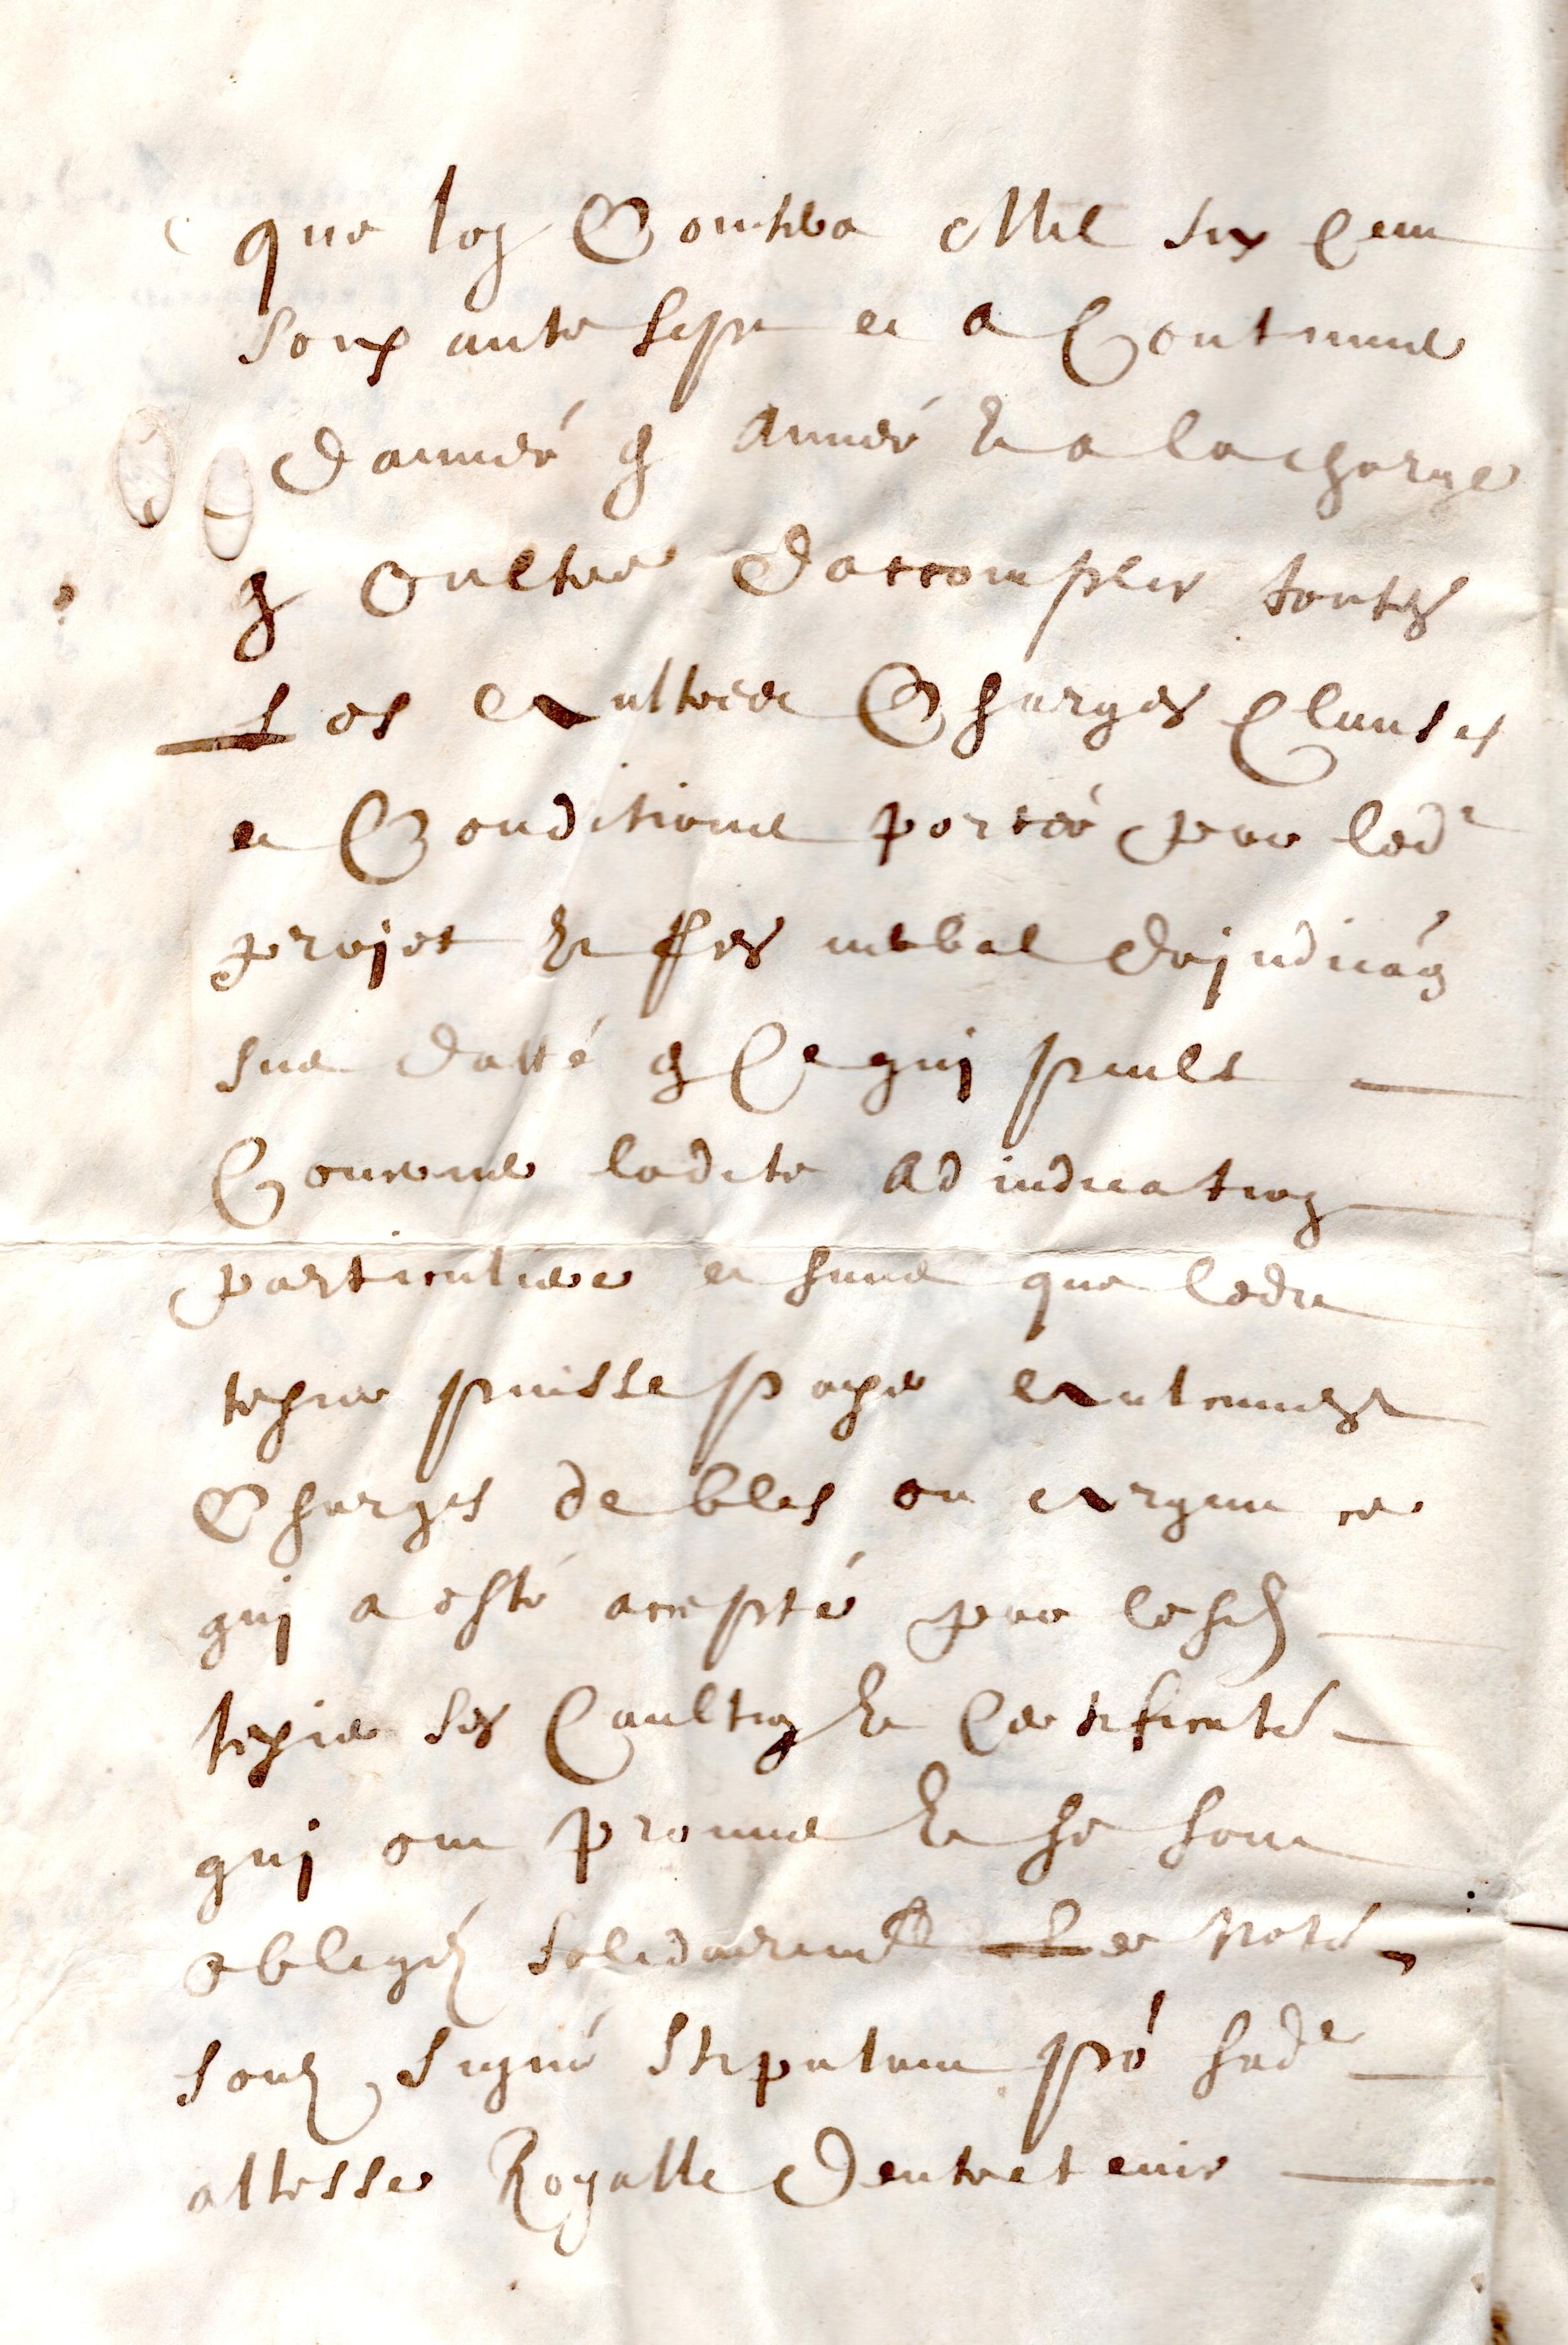 que lon Contera Mil six Cent
soixante sept et a Continué
d'année en année et a la charge
en Oultre d'accomplir toutes
Les Aultres Charges Clauses
et Conditions portés par led.t
projet et verbal d'ajudica.on
sus datté en Ce qui peult
Concerne ladite Adiudication
particuliere et sans que ledit
puisse paÿer Aulcunes
Charges de bles ou Argent ce
qui a esté accepté par lesd.
ses Caultion et Certificate
qui ont promis et se sont
obligés solidairem.t Not.e
soub signé stipulant po.r sad.e
altesse Royalle D'entretenir